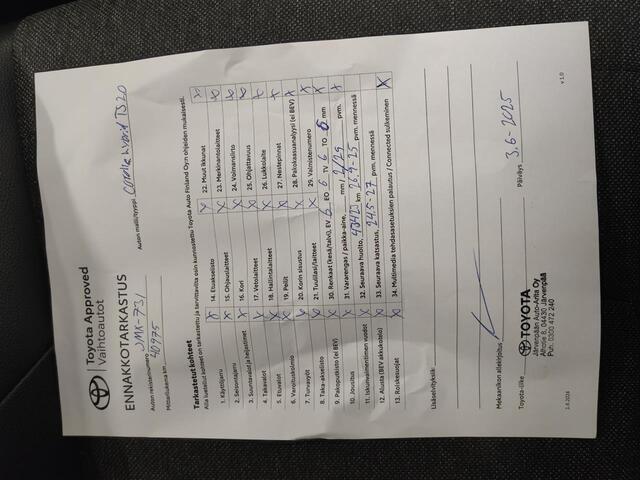 Toyota Approved
Vaihtoautot
ENNAKKOTARKASTUS
Auton rekisterinumero JMK-731 Auton malli/tyyppi corolla hybrid TS 2.0
Mittarilukema km 40975
Tarkastetut kohteet
Alla luetellut kohteet on tarkastettu ja tarvittavilta osin kunnostettu Toyota Auto Finland Oy:n ohjeiden mukaisesti.
1. Käyttöjarru X 14. Etuakselisto X 22. Muut ikkunat X
2. Seisontajarru X 15. Ohjauslaitteet X 23. Merkinantolaitteet X
3. Suuntavalot ja heijastimet X 16. Kori X 24. Voimansiirto X
4. Takavalot X 17. Vetolaitteet X 25. Ohjattavuus X
5. Etuvalot X 18. Hallintalaitteet X 26. Lukkolaite X
6. Varoituskolmio X 19. Peilit X 27. Nestepinnat X
7. Turvavyöt X 20. Korin sisustus X 28. Pakokaasuanalyysi (ei BEV) X
8. Taka-akselisto X 21. Tuulilasi/laitteet X 29. Valmistenumero X
9. Pakoputkisto (ei BEV) X 30. Renkaat (kesä/talvi), EV 6 EO 6 TV 6 TO 6 mm X
10. Jousitus X 31. Vararengas / paikka-aine, mm / 2/29 pvm.
11. Iskunvaimentimen vuodot X 32. Seuraava huolto, 48423 km 26.9-25 pvm. mennessä
12. Alusta (BEV akkukotelo) X 33. Seuraava katsastus, 24.5-27 pvm. mennessä
13. Roiskesuojat X 34. Multimedia tehdasasetuksien palautus / Connected sulkeminen X
Lisäselvityksiä:
Mekaanikon allekirjoitus Päiväys 3.6-2025
Toyota-liike TOYOTA
Järvenpään Auto-Arita Oy
Alhotie 8, 04430 Järvenpää
Puh. 0300 472 240
1.8.2024 v 1.0